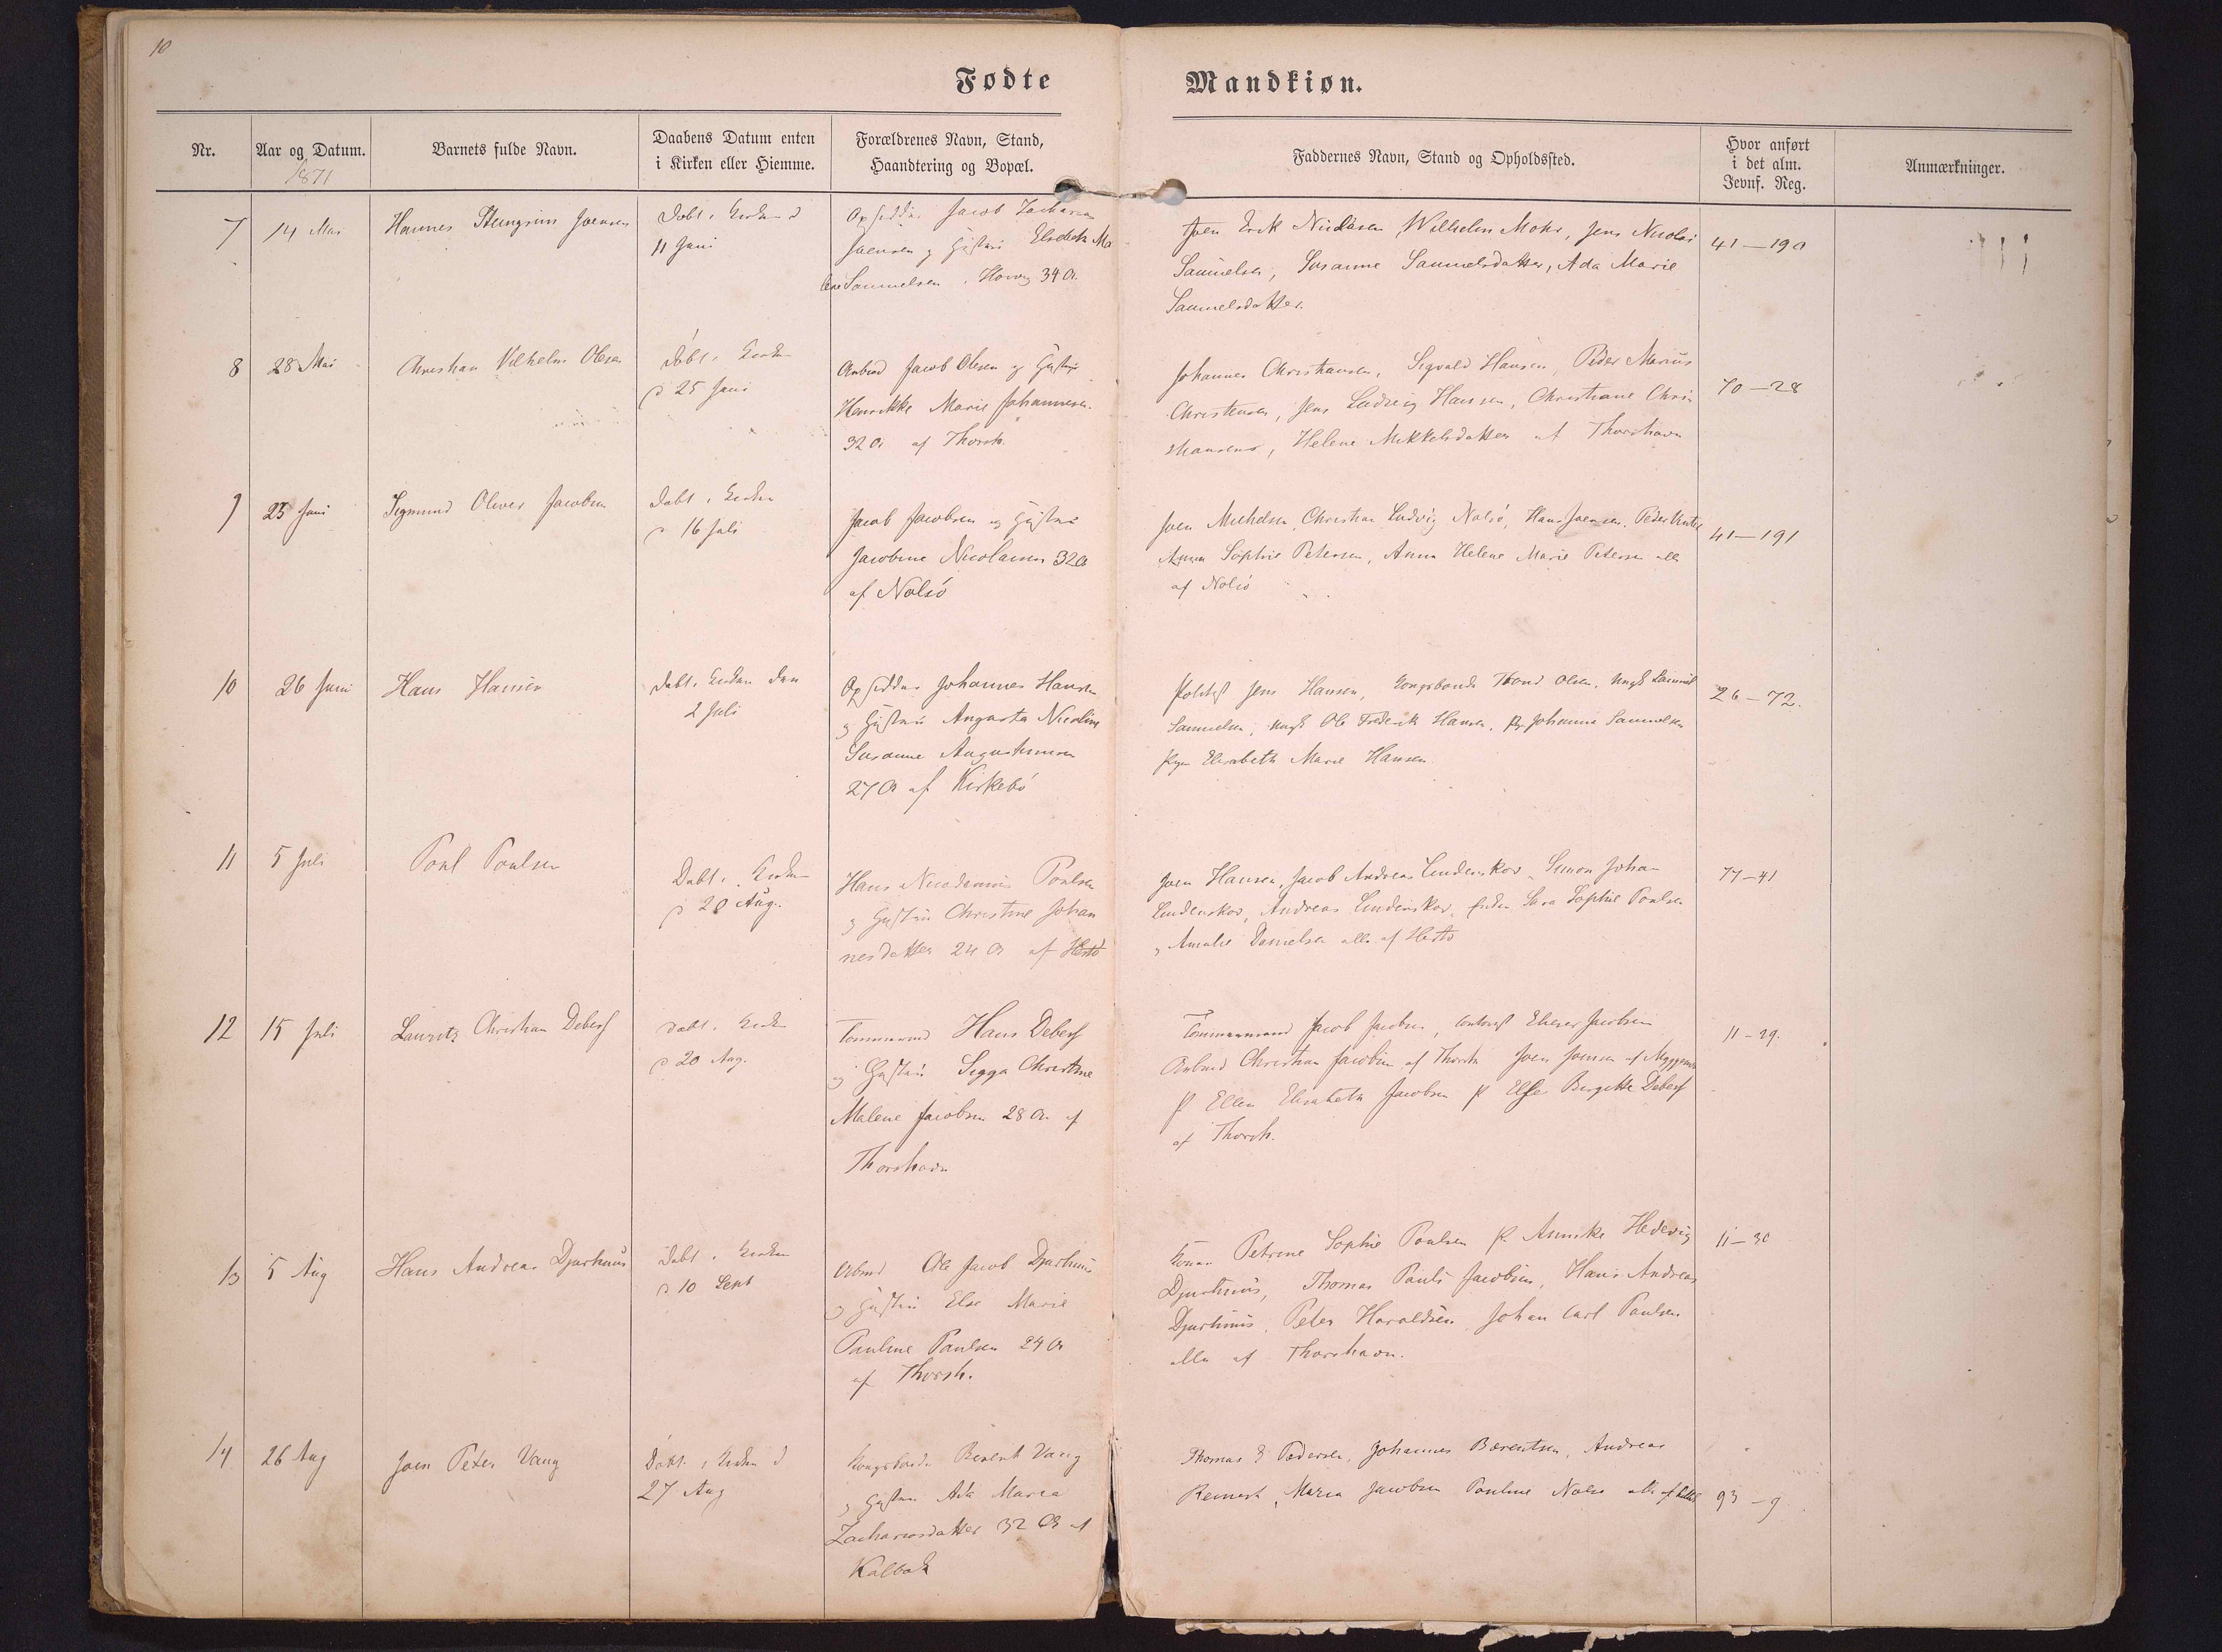 10
Fødte
Mandkiøn.
Nr.
Aar og Datum.
1871
Barnets fulde Navn.
Daabens Datum enten
i Kirken eller Hiemme.
Forældrenes Navn, Stand,
Haandtering og Bopæl.
Faddernes Navn, Stand og Opholdssted.
Hvor anført
i det alm.
Jevnf. Reg.
Anmærkninger.
7
14 Mai
Hannes Joensen
Døbt i Kirken d
11 Juni
Opsidder Jacob Zacharias
Joensen og Hustru Elsebeth Ma
lene Samuelsen, 34 A.
Joen Erik Niclasen Wilhelm Mohr, Jens Nicolai
Samuelsen, Susanne Samuelsdatter, Ada Marie
Samuelsdatter.
41–190
8
28 Mai
Christian Vilhelm Olsen
Døbt i Kirken
d 25 Juni
Arbmd Jacob Olesen og Hustru
Henrikke Marie Johannesen
32 A af Thorsh.
Johannes Christiansen, Sigvald Hansen, Peder Marius
Christensen, Jens Ludvig Hansen, Christiane Chri
stiansens, Helene Mikkelsdatter af Thorshavn
70–28
9
23 Juni
Sigmund Oliver Jacobsen
Døbt i Kirken
d 16 Juli
Jacob Jacobsen og Hustru
Jacobine Nicolaisen 32 A
af Nolsö
Joen Michelsen, Christian Ludvig Nolsö, Hans Joensen, Peder
Anna Sophie Petersen, Anna Helene Marie Petersen alle
af Nolsö
41–191
10
26 Juni
Hans Hansen
Døbt i Kirken den
2 Juli
Opsidder Johannes Hansen
og Hustru Augusta Nicoline
Susanne Augustinusen
27 A af Kirkebö
Jens Hansen, Kongsbonde Trond Olsen, Ungk Samuel
Samuelsen, Ungk Ole Frederik Hansen, Johanna Samuelsen
Elisabeth Marie Hansen
26–72.
11
5 Juli
Poul Poulsen
Døbt i Kirken
d 20 Aug.
Hans Nicodemus Poulsen
og Hustru Christine Johan
nesdatter 24 A af Hestö
Joen Hansen, Jacob Andreas Lindenskov, Simon Johan
Lindenskov, Andreas Lindenskov, Sara Sophie Poulsen
og Amalie Danielsen alle af Hestö
77–41
12
15 Juli
Lauritz Christian Debess
Døbt i Kirken
d 20 Aug.
Tømmermd Hans Debess
og Hustru Sigga Christine
Malene Jacobsen 28 A af
Thorshavn
Tømmermand Jacob Jacobsen, Elieser Jacobsen
Arbmd Christian Jacobsen af Thorsh Joen Joensen af
P Ellen Elisabeth Jacobsen P Else Birgitte Debess
af Thorsh.
11–29.
13
5 Aug
Hans Andreas Djurhuus
Døbt i Kirken
d 10 Sept
Arbmd Ole Jacob Djurhuus
og Hustru Else Marie
Pauline Paulsen 24 A
af Thorsh.
Konen Petrine Sophie Poulsen P. Annike Hedevig
Djurhuus, Thomas Pauli Jacobsen, Hans Andreas
Djurhuus, Peter Haraldsen, Johan Carl Paulsen
alle af Thorshavn.
11–30
14
26 Aug
Joen Peter Vang
Døbt i Kirken d
27 Aug
Kongsbonde Berent Vang
og Hustru Ada Maria
Zachariasdatter 32 A af
Kalbak
Thomas Pedersen, Johannes Bærentsen, Andreas
Reinert, Maria Jacobsen Pauline Nolsø alle af
93–9